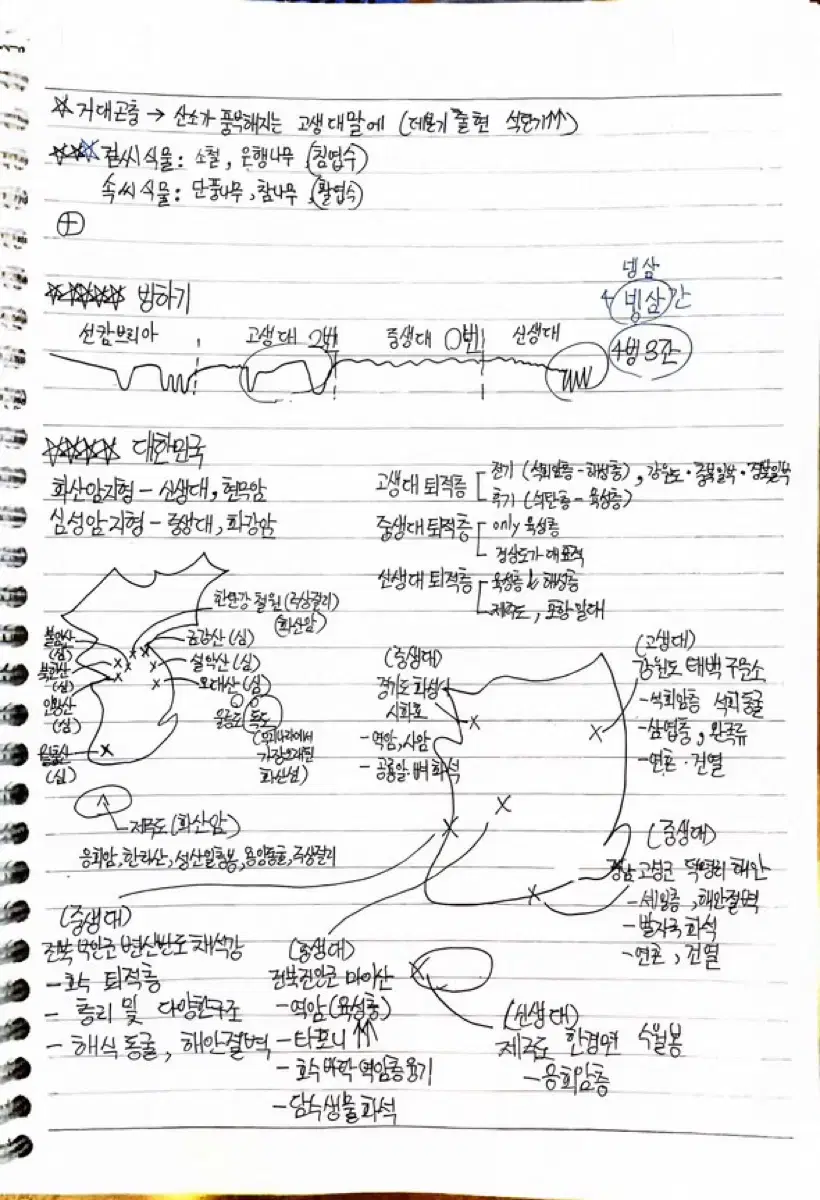 ☆ 거대곤충 → 산소가 풍부해지는 고생대말에 (데본기 출현 석탄기↑↑)
☆☆☆ 겉씨식물: 소철, 은행나무 (침엽수)
속씨식물: 단풍나무, 참나무, (활엽수)
⊕
☆☆☆☆☆ 빙하기
넹삼
4 넹삼간
4빙3간
선캄브리아 고생대 2번 중생대 0번 신생대
☆☆☆☆ 대한민국
화산암지형 - 신생대, 현무암
심성암지형 - 중생대, 화강암
고생대 퇴적층
전기 (석회암층 - 해성층), 강원도·충북일부·경북일부
후기 (석탄층 - 육성층)
중생대 퇴적층
only 육성층
경상도가 대표적
신생대 퇴적층
육성층 & 해성층
제주도, 포항 일대
한탄강 철원 (주상절리)
(화산암)
불암산
(심)
북한산
(심)
인왕산
(심)
(심)
금강산 (심)
설악산 (심)
오대산 (심)
울릉도 독도
(우리나라에서
가장오래된
화산섬)
제주도 (화산암)
응회암, 한라산, 성산일출봉, 용암동굴, 주상절리
(중생대)
경기도 화성시
시화호
- 역암, 사암
- 공룡알 뼈 화석
(고생대)
강원도 태백 구문소
- 석회암층 석회동굴
- 삼엽충, 완족류
- 연흔·건열
(중생대)
경남 고성군 덕명리 해안
- 셰일층, 해안절벽
- 발자국 화석
- 연흔, 건열
(중생대)
전북 부안군 변산반도 채석강
- 호수 퇴적층
- 층리 및 다양한구조
- 해식동굴, 해안절벽
(중생대)
전북진안군 마이산
- 역암 (육성층)
- 타포니 ↑↑
- 호수바닥 역암층융기
- 담수생물화석
(신생대)
제주도 한경면 수월봉
- 응회암층